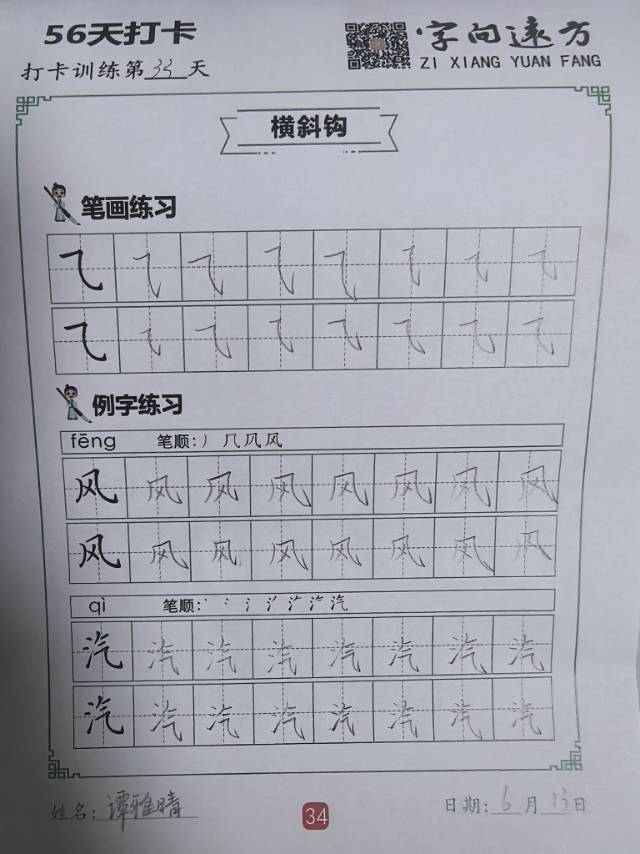 56天打卡
打卡训练第33天
字向远方
ZI XIANG YUAN FANG
横斜钩
笔画练习
⺄ ⺄ ⺄ ⺄ ⺄ ⺄ ⺄ ⺄
⺄ ⺄ ⺄ ⺄ ⺄ ⺄ ⺄ ⺄
例字练习
fēng 笔顺:丿 几 凤 风
风 风 风 风 风 风 风 风
风 风 风 风 风 风 风 风
qì 笔顺:
汽 汽 汽 汽 汽 汽 汽 汽
汽 汽 汽 汽 汽 汽 汽 汽
姓名:谭雅晴
34
日期:6月13日